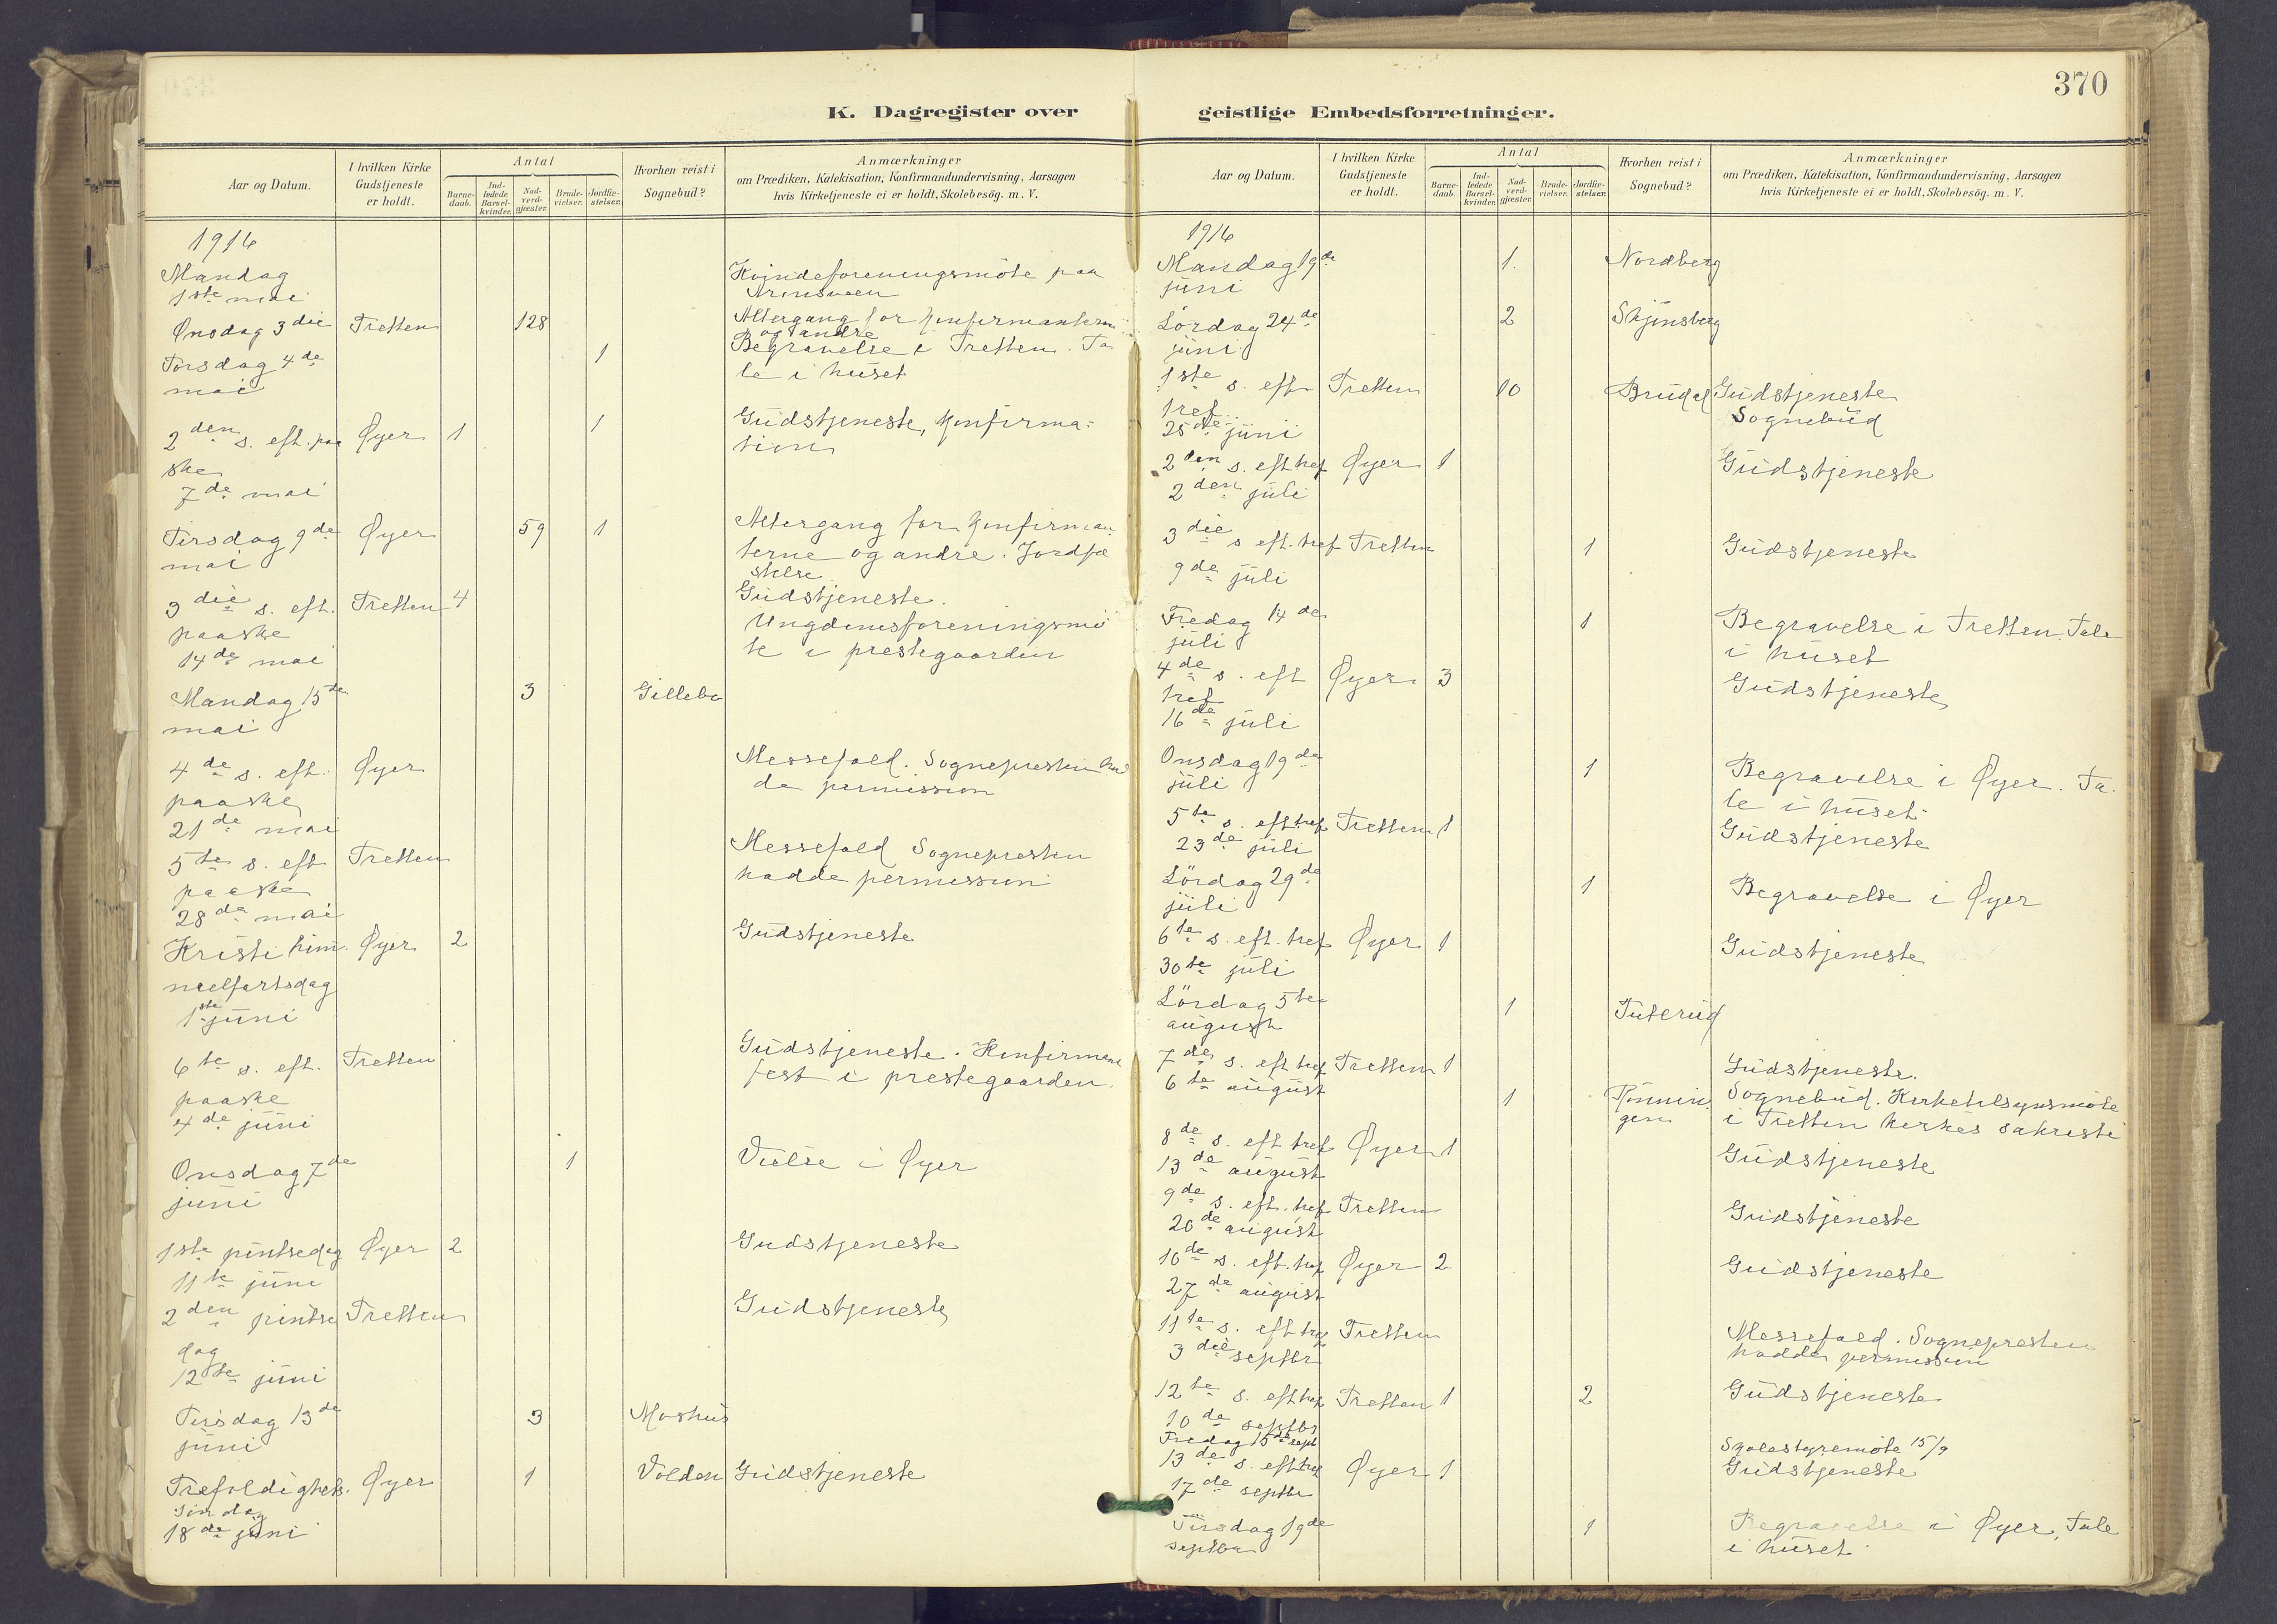 K. Dagregister over
Aar og Datum.
I hvilken Kirke Gudstjeneste er holdt.
Antal
Barne-daab.
Ind-ledede Barsel-kvinder.
Nad-verd-gjæster.
Brude-vielser.
Jordfæ-stelser.
Hvorhen reist i Sognebud?
Anmærkninger
om Prædiken, Katekisation, Konfirmandundervisning, Aarsagen
hvis Kirketjeneste ei er holdt, Skolebesög. m. V.
1916
Mandag Kvindeforeningsmöte paa
1ste mai
Onsdag 3die Tretten 128 Altergang for konfirmanterne
og andre
Torsdag 4de 1 Begravelse i Tretten. Ta
mai le i huset
2den s. eft. paa Øyer 1 1 Gudstjeneste, konfirma=
ske tion
7de mai
Tirsdag 9de Øyer 59 1 Altergang for konfirman
mai terne og andre. Jordfæ
stelse
3die s. eft. Tretten 4 Gudstjeneste.
paaske Ungdomsforeningsmö
14de mai te i prestegaarden
Mandag 15de 3 Gillebo
mai
4de s. eft. Øyer Messefald. Sognepresten had
paaske de permission
21de mai
5te s. eft Tretten Messefald Sognepresten
paaske hadde permission
28de mai
Kristi him. Øyer 2 Gudstjeneste
melfartsdag
1ste juni
6te s. eft. Tretten Gudstjeneste. Konfirmant
paaske fest i prestegaarden.
4de juni
Onsdag 7de 1 Vielse i Øyer
juni
1ste pintsedag Øyer 2 Gudstjeneste
11te juni
2den pintse Tretten Gudstjeneste
dag
12te juni
Tirsdag 13de 3 Moshus
juni
Trefoldigheds. Øyer 1 Volden Gudstjeneste
søndag
18de juni
370
geistlige Embedsforretninger.
Aar og Datum.
I hvilken Kirke Gudstjeneste er holdt.
Antal
Barne-daab.
Ind-ledede Barsel-kvinder.
Nad-verd-gjæster.
Brude-vielser.
Jordfæ-stelser.
Hvorhen reist i Sognebud?
Anmærkninger
om Prædiken, Katekisation, Konfirmandundervisning, Aarsagen
hvis Kirketjeneste ei er holdt, Skolebesög. m. V.
1916
Mandag 19de 1. Nordberg
juni
Lördag 24de 2 Skjønsberg
juni
1ste s. eft Tretten 10 Brudal Gudstjeneste
tref. Sognebud
25de juni
2den s. eft tref Øyer 1 Gudstjeneste
2den juli
3die s eft. tref Tretten 1 Gudstjeneste
9de juli
Fredag 14de 1 Begravelse i Tretten. Tale
juli i huset
4de s. eft Øyer 3 Gudstjeneste
tref
16de juli
Onsdag 19de 1 Begravelse i Øyer. Ta.
juli le i huset.
5te s. eft tref Tretten 1 Gudstjeneste
23de juli
Lördag 29de 1 Begravelse i Øyer
juli
6te s. eft. tref Øyer 1 Gudstjeneste
30te juli
Lördag 5te 1 Tuterud
august
7de s. eft tref Tretten 1 Gudstjeneste.
6te august 1 Rönnin Sognebud. Kirketilsynsmöte
gen i Tretten kirkes sakristi
8de s. eft tref Øyer 1 Gudstjeneste
13de august
9de s. eft. tref Tretten Gudstjeneste
20de august
10de s. eft. tref Øyer 2. Gudstjeneste
27de august
11te s. eft tref Tretten Messefald. Sognepresten
3die septbr hadde permission
12te s. eft tref Tretten 1 2 Gudstjeneste
10de septbr
Fredag 15de sept Skolestyremöte 15/9
13de s. eft tref Øyer 1 Gudstjeneste
17de septbr
Tirsdag 19de 1 Begravelse i Øyer, Tale
septbr i huset.